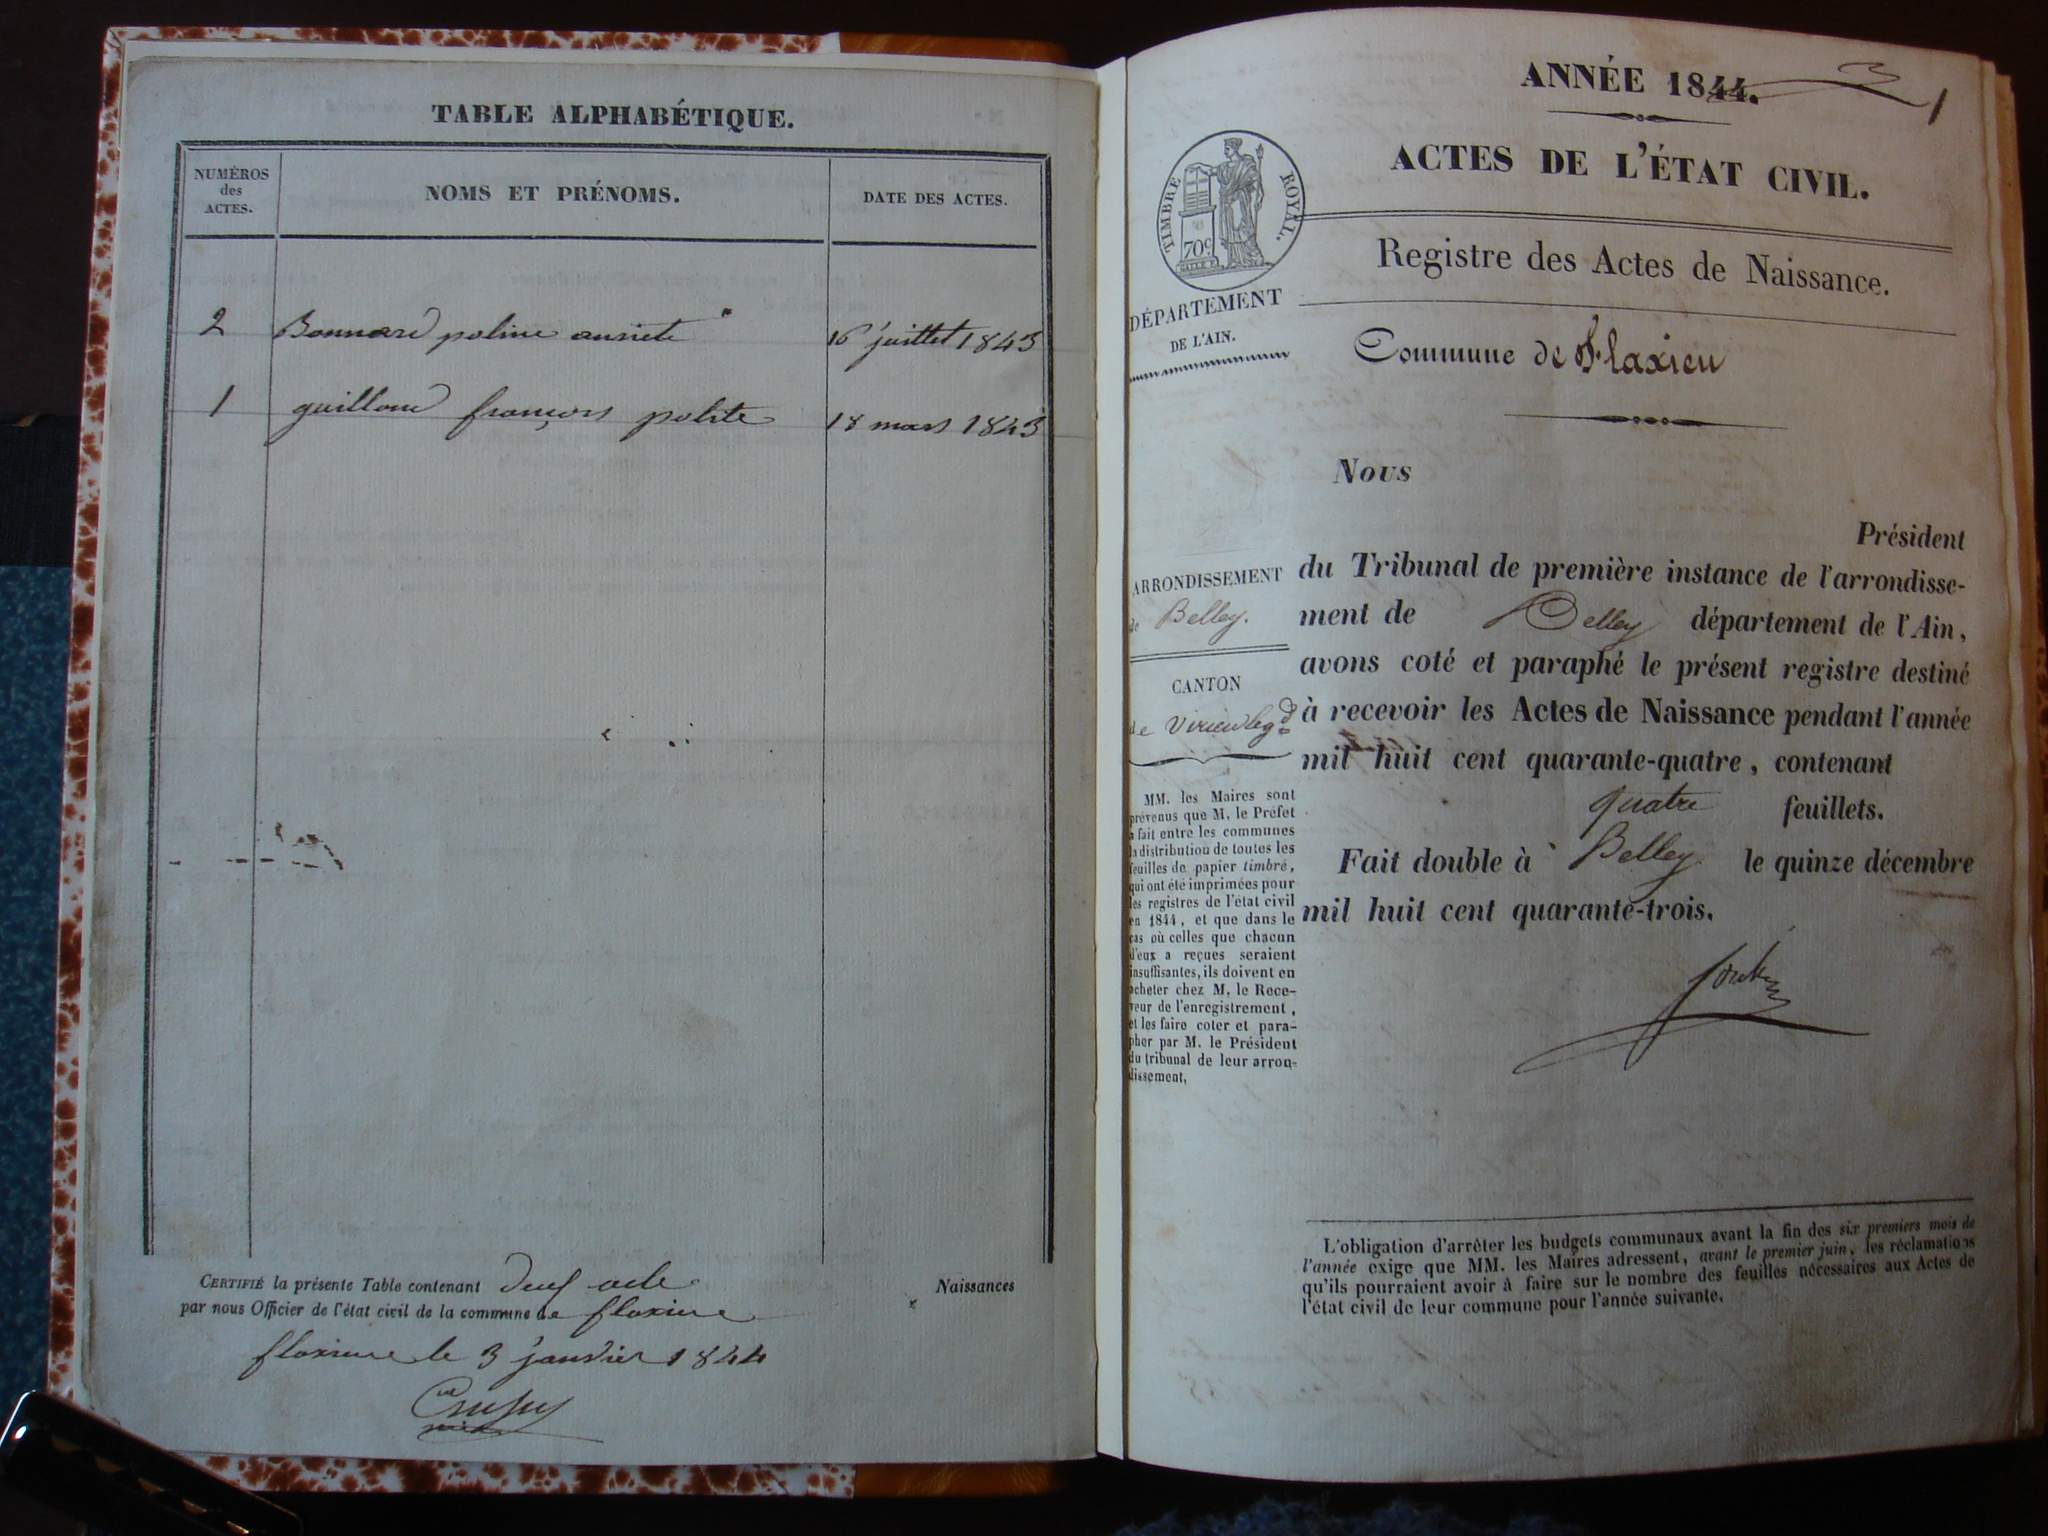 TABLE ALPHABÉTIQUE.
NUMÉROS des ACTES.
NOMS ET PRÉNOMS.
DATE DES ACTES.
2 Bonnard poline 16 juillet 1843
1 françois polite 18 mars 1843
CERTIFIÉ la présente Table contenant deux acte Naissances
par nous Officier de l'état civil de la commune de
le 3 janvier 1844
ANNÉE 1844.
1
ACTES DE L'ÉTAT CIVIL.
TIMBRE ROYAL.
70c
Registre des Actes de Naissance.
DÉPARTEMENT
DE L'AIN.
Commune de Flaxieu
Nous
Président
du Tribunal de première instance de l'arrondisse-
ment de Belley département de l'Ain,
avons coté et paraphé le présent registre destiné
à recevoir les Actes de Naissance pendant l'année
mil huit cent quarante-quatre, contenant
quatre feuillets.
Fait double à Belley le quinze décembre
mil huit cent quarante-trois.
ARRONDISSEMENT
de Belley.
CANTON
de Virieu le gd
MM. les Maires sont
prévenus que M. le Préfet
a fait entre les communes
la distribution de toutes les
feuilles de papier timbré,
qui ont été imprimées pour
les registres de l'état civil
en 1844, et que dans le
cas où celles que chacun
d'eux a reçues seraient
insuffisantes, ils doivent en
acheter chez M. le Rece-
veur de l'enregistrement,
et les faire coter et para-
pher par M. le Président
du tribunal de leur arron-
dissement,
L'obligation d'arrêter les budgets communaux avant la fin des six premiers mois de
l'année exige que MM. les Maires adressent, avant le premier juin, les réclamations
qu'ils pourraient avoir à faire sur le nombre des feuilles nécessaires aux Actes de
l'état civil de leur commune pour l'année suivante.